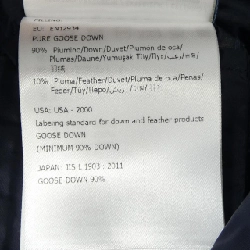 PURE GOOSE DOWN
90% Piumino/Down/Duvet/Plumon de oca/
Plumas/Daune/Yumuşak Tüy/Пух/
10% Piuma/Feather/Duvet/Pluma de oca/Penas/
Feder/Tüy/Перо/
USA: USA - 2000
Labeling standard for down and feather products
GOOSE DOWN
(MINIMUM 90% DOWN)
JAPAN: JIS L 1903 : 2011
GOOSE DOWN 90%